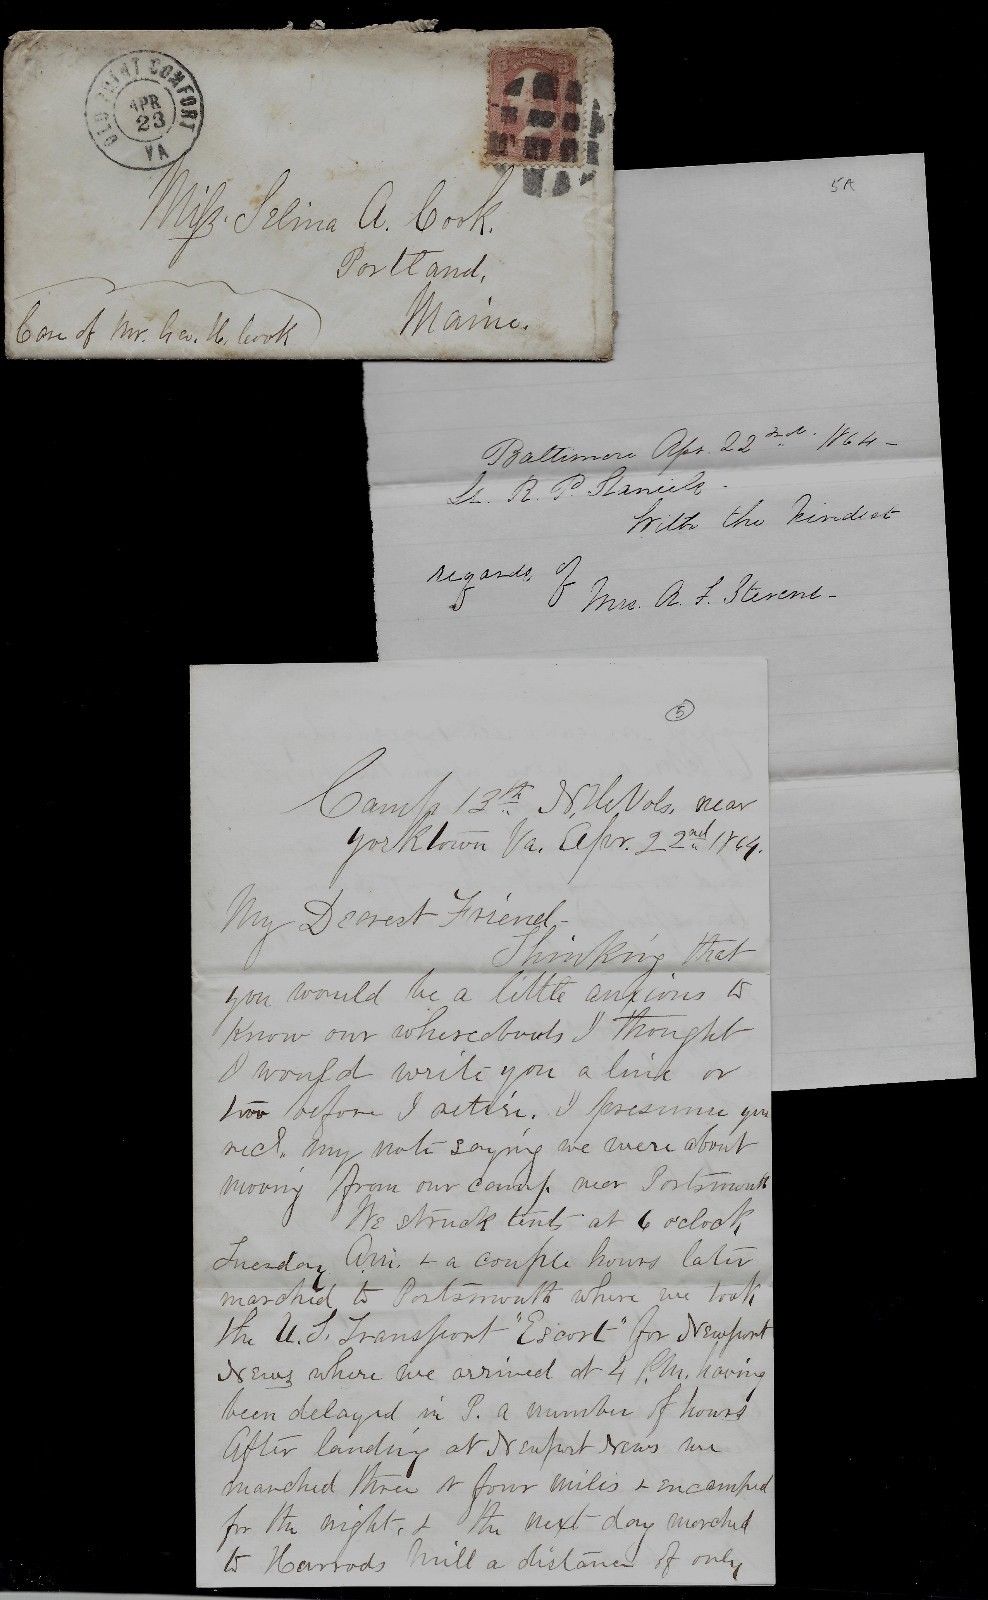 OLD POINT COMFORT
APR
23
VA
Miss. Selina A. Cook.
Portland,
Maine.
Care of Mr. Geo. H. Cook
5A
Baltimore Apr. 22nd. 1864-
Lt. R. P. Staniels-
With the kindest
regards, of
Mrs. A. F. Stevens-
5
Camp 13th N.H. Vols. near
Yorktown Va. Apr. 22nd 1864.
My Dearest Friend-
Thinking that
you would be a little anxious to
know our whereabouts I thought
I would write you a line or
two before I retire. I presume you
recd. my note saying we were about
moving from our camp near Portsmouth
We struck tents at 6 oclock
Tuesday A.M. & a couple hours later
marched to Portsmouth where we took
the U.S. Transport "Escort" for Newport
News where we arrived at 4 P.M. having
been delayed in P. a number of hours
After landing at Newport News we
marched three or four miles & encamped
for the night, & the next day marched
to Harrods Mill a distance of only